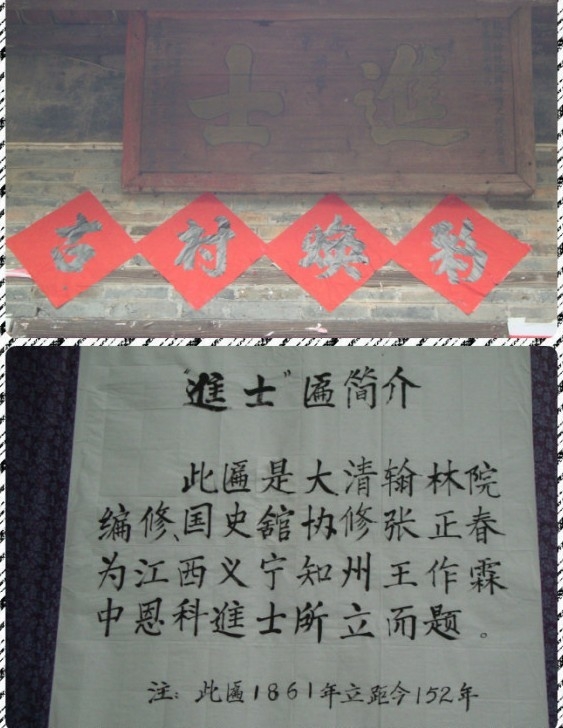 進士
古村焕彩
“進士”匾简介
此匾是大清翰林院
编修、国史舘协修张正春
为江西义宁知州王作霖
中恩科進士所立而题。
注：此匾1861年立距今152年